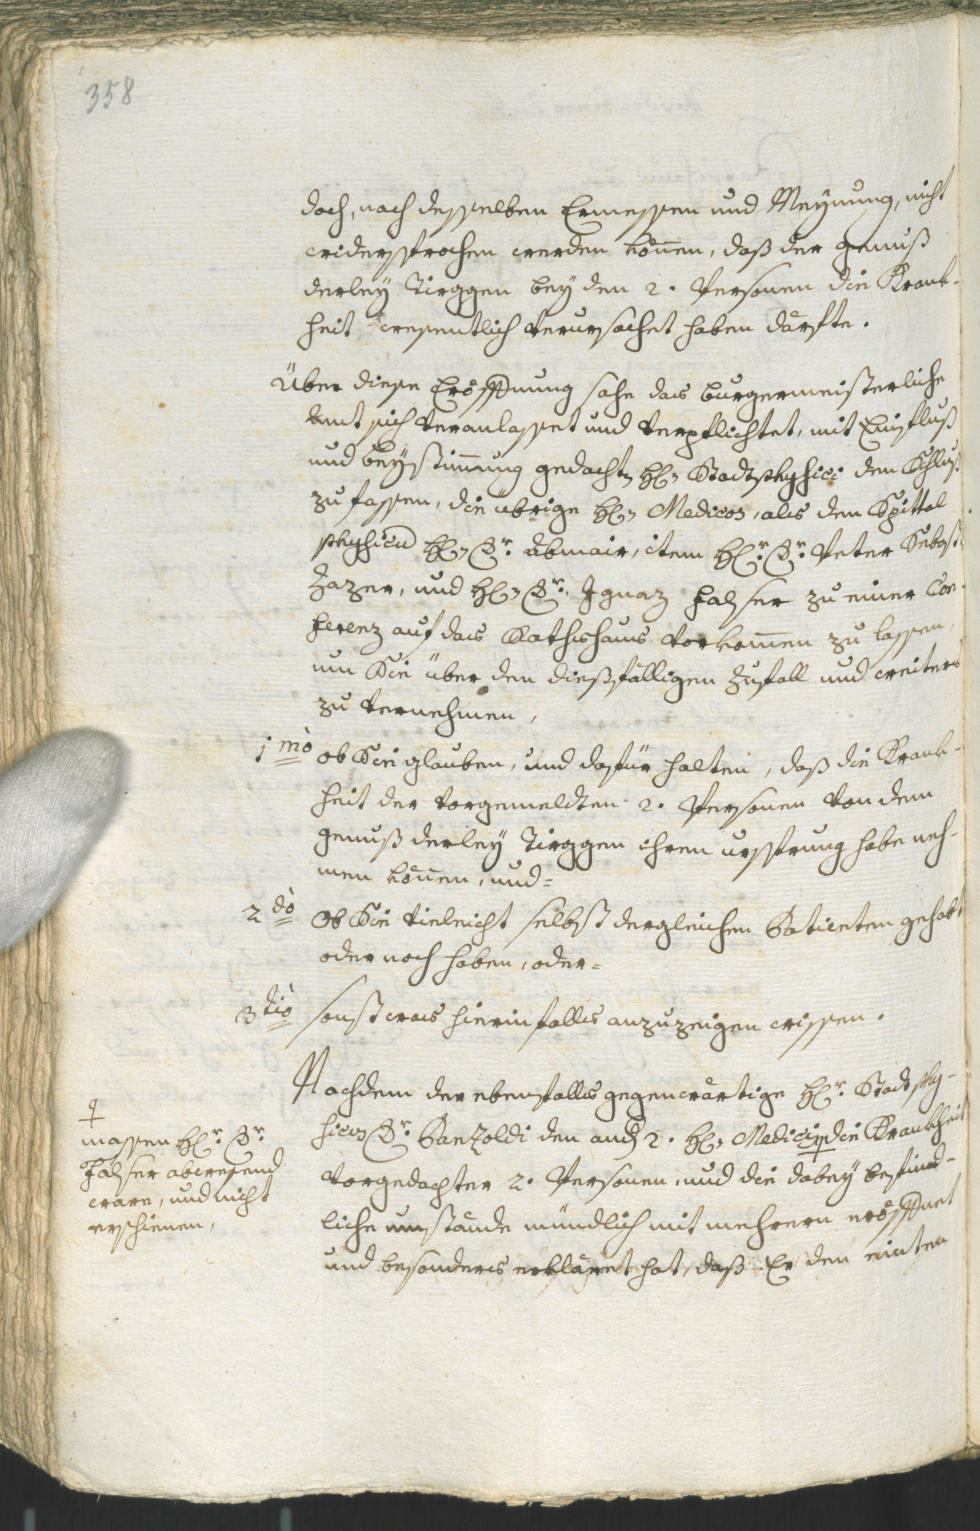 358
doch, nach desselben Ermessen und Meÿnung, nicht
widersprochen werden können, daß der genuß
derleÿ Tirggen beÿ den 2. Personen die Krank-
heit wesentlich verursachet haben därfte.
Über diese Eröffnung sahe das burgermeisterliche
Amt sich veranlasset und verpflichtet, mit Einfluß
und beÿstimung gedachten H: Stadtphysici den Schluß
zu fassen, die übrige H: Medicos, als den Spittal
physicum H: Dr. Abmair, item H: Dr. Peter Sebast:
Zazer, und H: Dr. Ignaz Halser zu einer Con-
ferenz auf das Rathshaus vorkomen zu lassen,
um Sie über den dießfälligen Zufall und weiters
zu vernehmen,
1mo ob Sie glauben, und dafür halten, daß die Krank-
heit der vorgemeldten 2. Personen von dem
genuß derleÿ Tirggen ihren ursprung habe neh-
men können, und=
2do Ob Sie vieleicht selbst dergleichen Patienten gehabt
oder noch haben, oder=
3tio sonst was hierinfalls anzuzeigen wissen.
Nachdem der ebenfalls gegenwärtige H:r Stadtphÿ-
sicus Dr. Panzoldi den andern 2. H: Medicis die Krankheit
vorgedachter 2. Personen, und die dabeÿ befind-
liche umstände mündlich mit mehrern eröffnet
und besonders erkläret hat, daß Er den einten
massen H:r Dr.
Halser abwesend
ware, und nicht
erschienen,